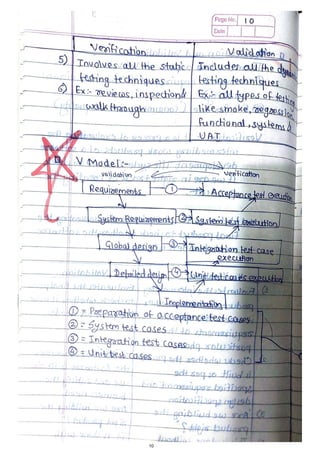 Page No. 10
Date
Verification
Validation
5) Involves all the static
testing techniques
Includes all the
testing techniques
6) Ex:- reviews, inspections
walkthrough
Ex:- all types of testing
like smoke, regression
Functional, systems &
UAT
V Model:-
validation
verification
Requirements
①
Acceptance test execution
System Requirements
②
System test execution
Global design
③
Integration test case
execution
Detailed design
④
Unit test cases execution
Implementation
① = Preparation of acceptance test cases
② = System test cases
③ = Integration test cases
④ = Unit test cases
10